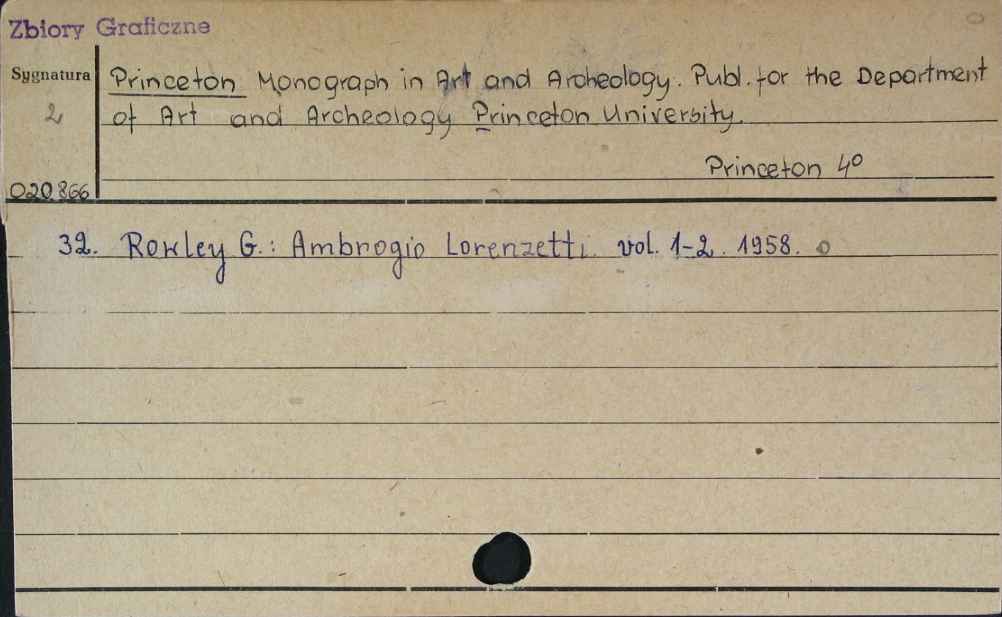 Zbiory Graficzne
Sygnatura
2
020.866
Princeton Monograph in Art and Archeology. Publ. for the Department
of Art and Archeology Princeton University.
Princeton 4º
32. Rowley G.: Ambrogio Lorenzetti. vol. 1-2. 1958. o